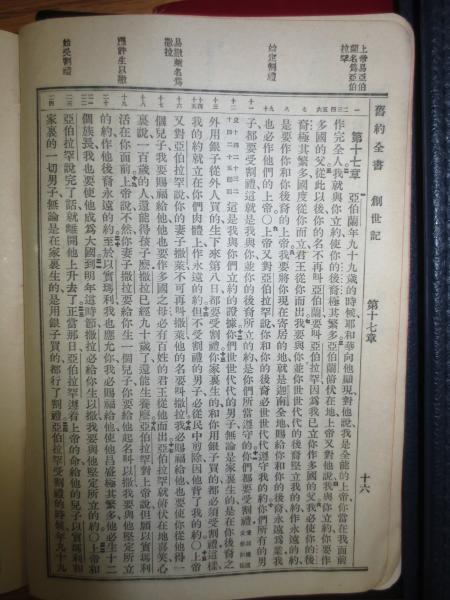 舊約全書 創世記 第十七章 十六
上帝易亞伯
蘭名爲亞伯
拉罕
始定割禮
易撒萊名爲
撒拉
應許生以撒
始受割禮
第十七章 亞伯蘭年九十九歲的時候耶和華向他顯現對他說我是全能的上帝你當在我面前
作完全人我就與你立約使你的後裔極其繁多亞伯蘭俯伏在地上帝又對他說我與你立約你要作
多國的父從此以後你的名不再叫亞伯蘭要叫亞伯拉罕因爲我已立你作多國的父我必使你的後裔
極其繁多國度從你而立君王從你而出我要與你並你世世代代的後裔堅立我的約作永遠的約
是要作你和你後裔的上帝我要將你現在寄居的地就是迦南全地賜給你和你的後裔永遠爲業我
也必作他們的上帝上帝又對亞伯拉罕說你和你的後裔必世世代代遵守我的約你們所有的男
子都要受割禮這就是我與你並你的後裔所立的約是你們所當遵守的你們都要受割禮
這是我與你們立約的證據你們世世代代的男子無論是家裏生的是在你後裔之
外用銀子從外人買的生下來第八日都要受割禮你家裏生的和你用銀子買的都必須受割禮這樣
我的約就立在你們肉體上作永遠的約但不受割禮的男子必從民中剪除因他背了我的約〇上帝
又對亞伯拉罕說你的妻子撒萊不可再叫撒萊他的名要叫撒拉我必賜福給他也要使你從他得一
個兒子我要賜福給他他也要作多國之母必有百姓的君王從他而出亞伯拉罕就俯伏在地喜笑心
裏說一百歲的人還能得孩子麼撒拉已經九十歲了還能生養麼亞伯拉罕對上帝說但願以實瑪利
活在你面前上帝說不然你妻子撒拉要給你生一個兒子你要給他起名叫以撒我要與他堅定所立
的約作他後裔永遠的約至於以實瑪利我也應允你我必賜福給他使他昌盛極其繁多他必生十二
個族長我也要使他成爲大國到明年這時節撒拉必給你生以撒我要與他堅定所立的約〇上帝和
亞伯拉罕說完了話就離開他上升去了正當那日亞伯拉罕遵着上帝的命給他的兒子以實瑪利和
家裏的一切男子無論是在家裏生的是用銀子買的都行了割禮亞伯拉罕受割禮的時候年九十九